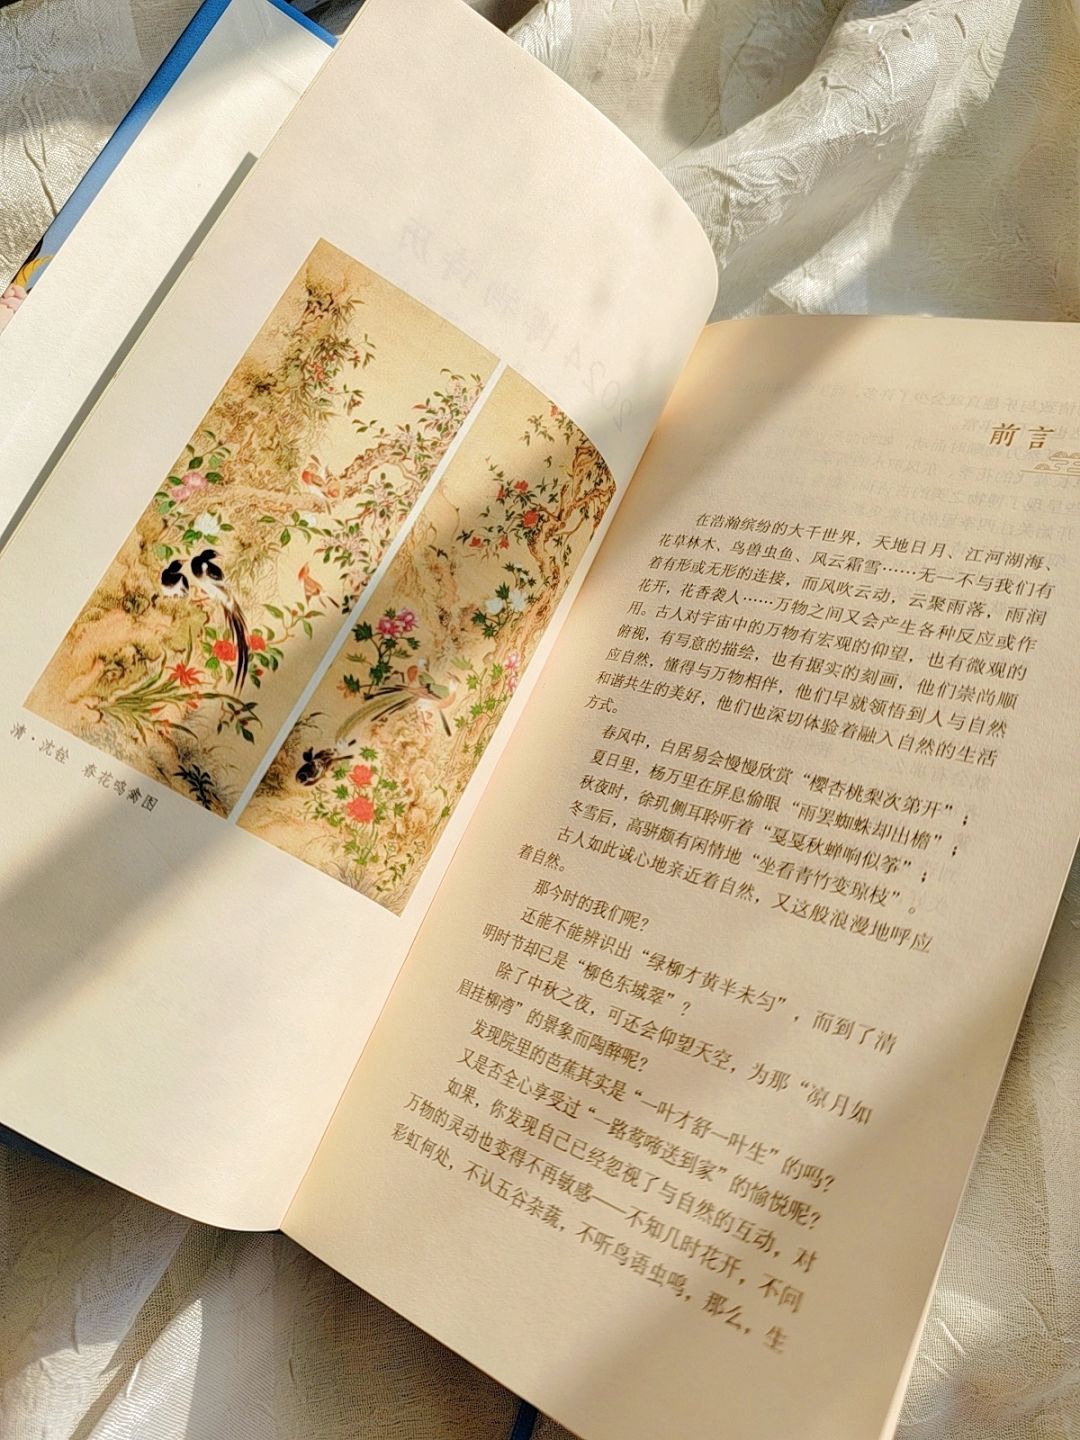 清·沈铨　春花鸣禽图
前言
在浩瀚缤纷的大千世界，天地日月、江河湖海、
花草林木、鸟兽虫鱼、风云霜雪……无一不与我们有
着有形或无形的连接，而风吹云动，云聚雨落，雨润
花开，花香袭人……万物之间又会产生各种反应或作
用。古人对宇宙中的万物有宏观的仰望，也有微观的
俯视，有写意的描绘，也有据实的刻画，他们崇尚顺
应自然，懂得与万物相伴，他们早就领悟到人与自然
和谐共生的美好，他们也深切体验着融入自然的生活
方式。
春风中，白居易会慢慢欣赏“樱杏桃梨次第开”；
夏日里，杨万里在屏息偷眼“雨罢蜘蛛却出檐”；
秋夜时，徐玑侧耳聆听着“戛戛秋蝉响似筝”；
冬雪后，高骈颇有闲情地“坐看青竹变琼枝”。
古人如此诚心地亲近着自然，又这般浪漫地呼应
着自然。
那今时的我们呢？
还能不能辨识出“绿柳才黄半未匀”，而到了清
明时节却已是“柳色东城翠”？
除了中秋之夜，可还会仰望天空，为那“凉月如
眉挂柳湾”的景象而陶醉呢？
发现院里的芭蕉其实是“一叶才舒一叶生”的吗？
又是否全心享受过“一路莺啼送到家”的愉悦呢？
如果，你发现自己已经忽视了与自然的互动，对
万物的灵动也变得不再敏感——不知几时花开，不问
彩虹何处，不认五谷杂蔬，不听鸟语虫鸣，那么，生